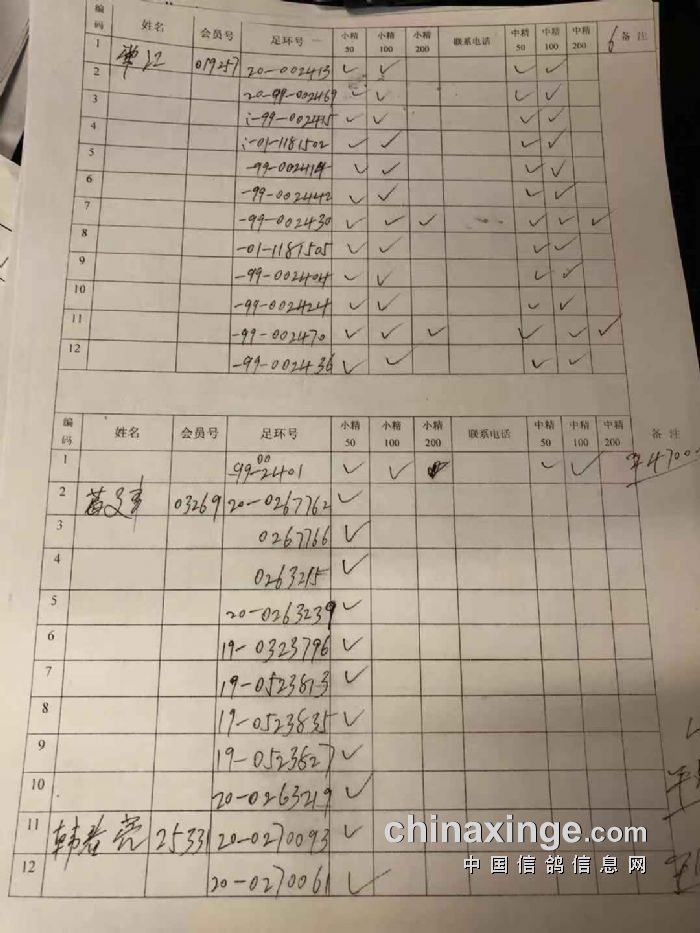 编码 姓名 会员号 足环号 小精50 小精100 小精200 联系电话 中精50 中精100 中精200 备注
1 019257 20-002413 ✓ ✓ ✓ ✓
2 20-99-002469 ✓ ✓ ✓ ✓
3 -99-002415 ✓ ✓ ✓ ✓
4 -01-1181502 ✓ ✓ ✓ ✓
5 -99-002414 ✓ ✓ ✓ ✓
6 -99-002442 ✓ ✓ ✓ ✓
7 -99-002430 ✓ ✓ ✓ ✓ ✓ ✓
8 -01-1181505 ✓ ✓ ✓ ✓
9 -99-002404 ✓ ✓ ✓ ✓
10 -99-002424 ✓ ✓ ✓ ✓
11 -99-002470 ✓ ✓ ✓ ✓ ✓ ✓
12 -99-002436 ✓ ✓ ✓ ✓
编码 姓名 会员号 足环号 小精50 小精100 小精200 联系电话 中精50 中精100 中精200 备注
1 -99-002401 ✓ ✓ ✓ ✓ 4700
2 03269 20-0267762 ✓
3 0267766 ✓
4 0263215 ✓
5 20-0263239 ✓
6 19-0323796 ✓
7 19-0523813 ✓
8 19-0523835 ✓
9 19-0523827 ✓
10 20-0263219 ✓
11 韩春亮 25331 20-0270093 ✓
12 20-0270061 ✓
chinaxinge.com
中国信鸽信息网